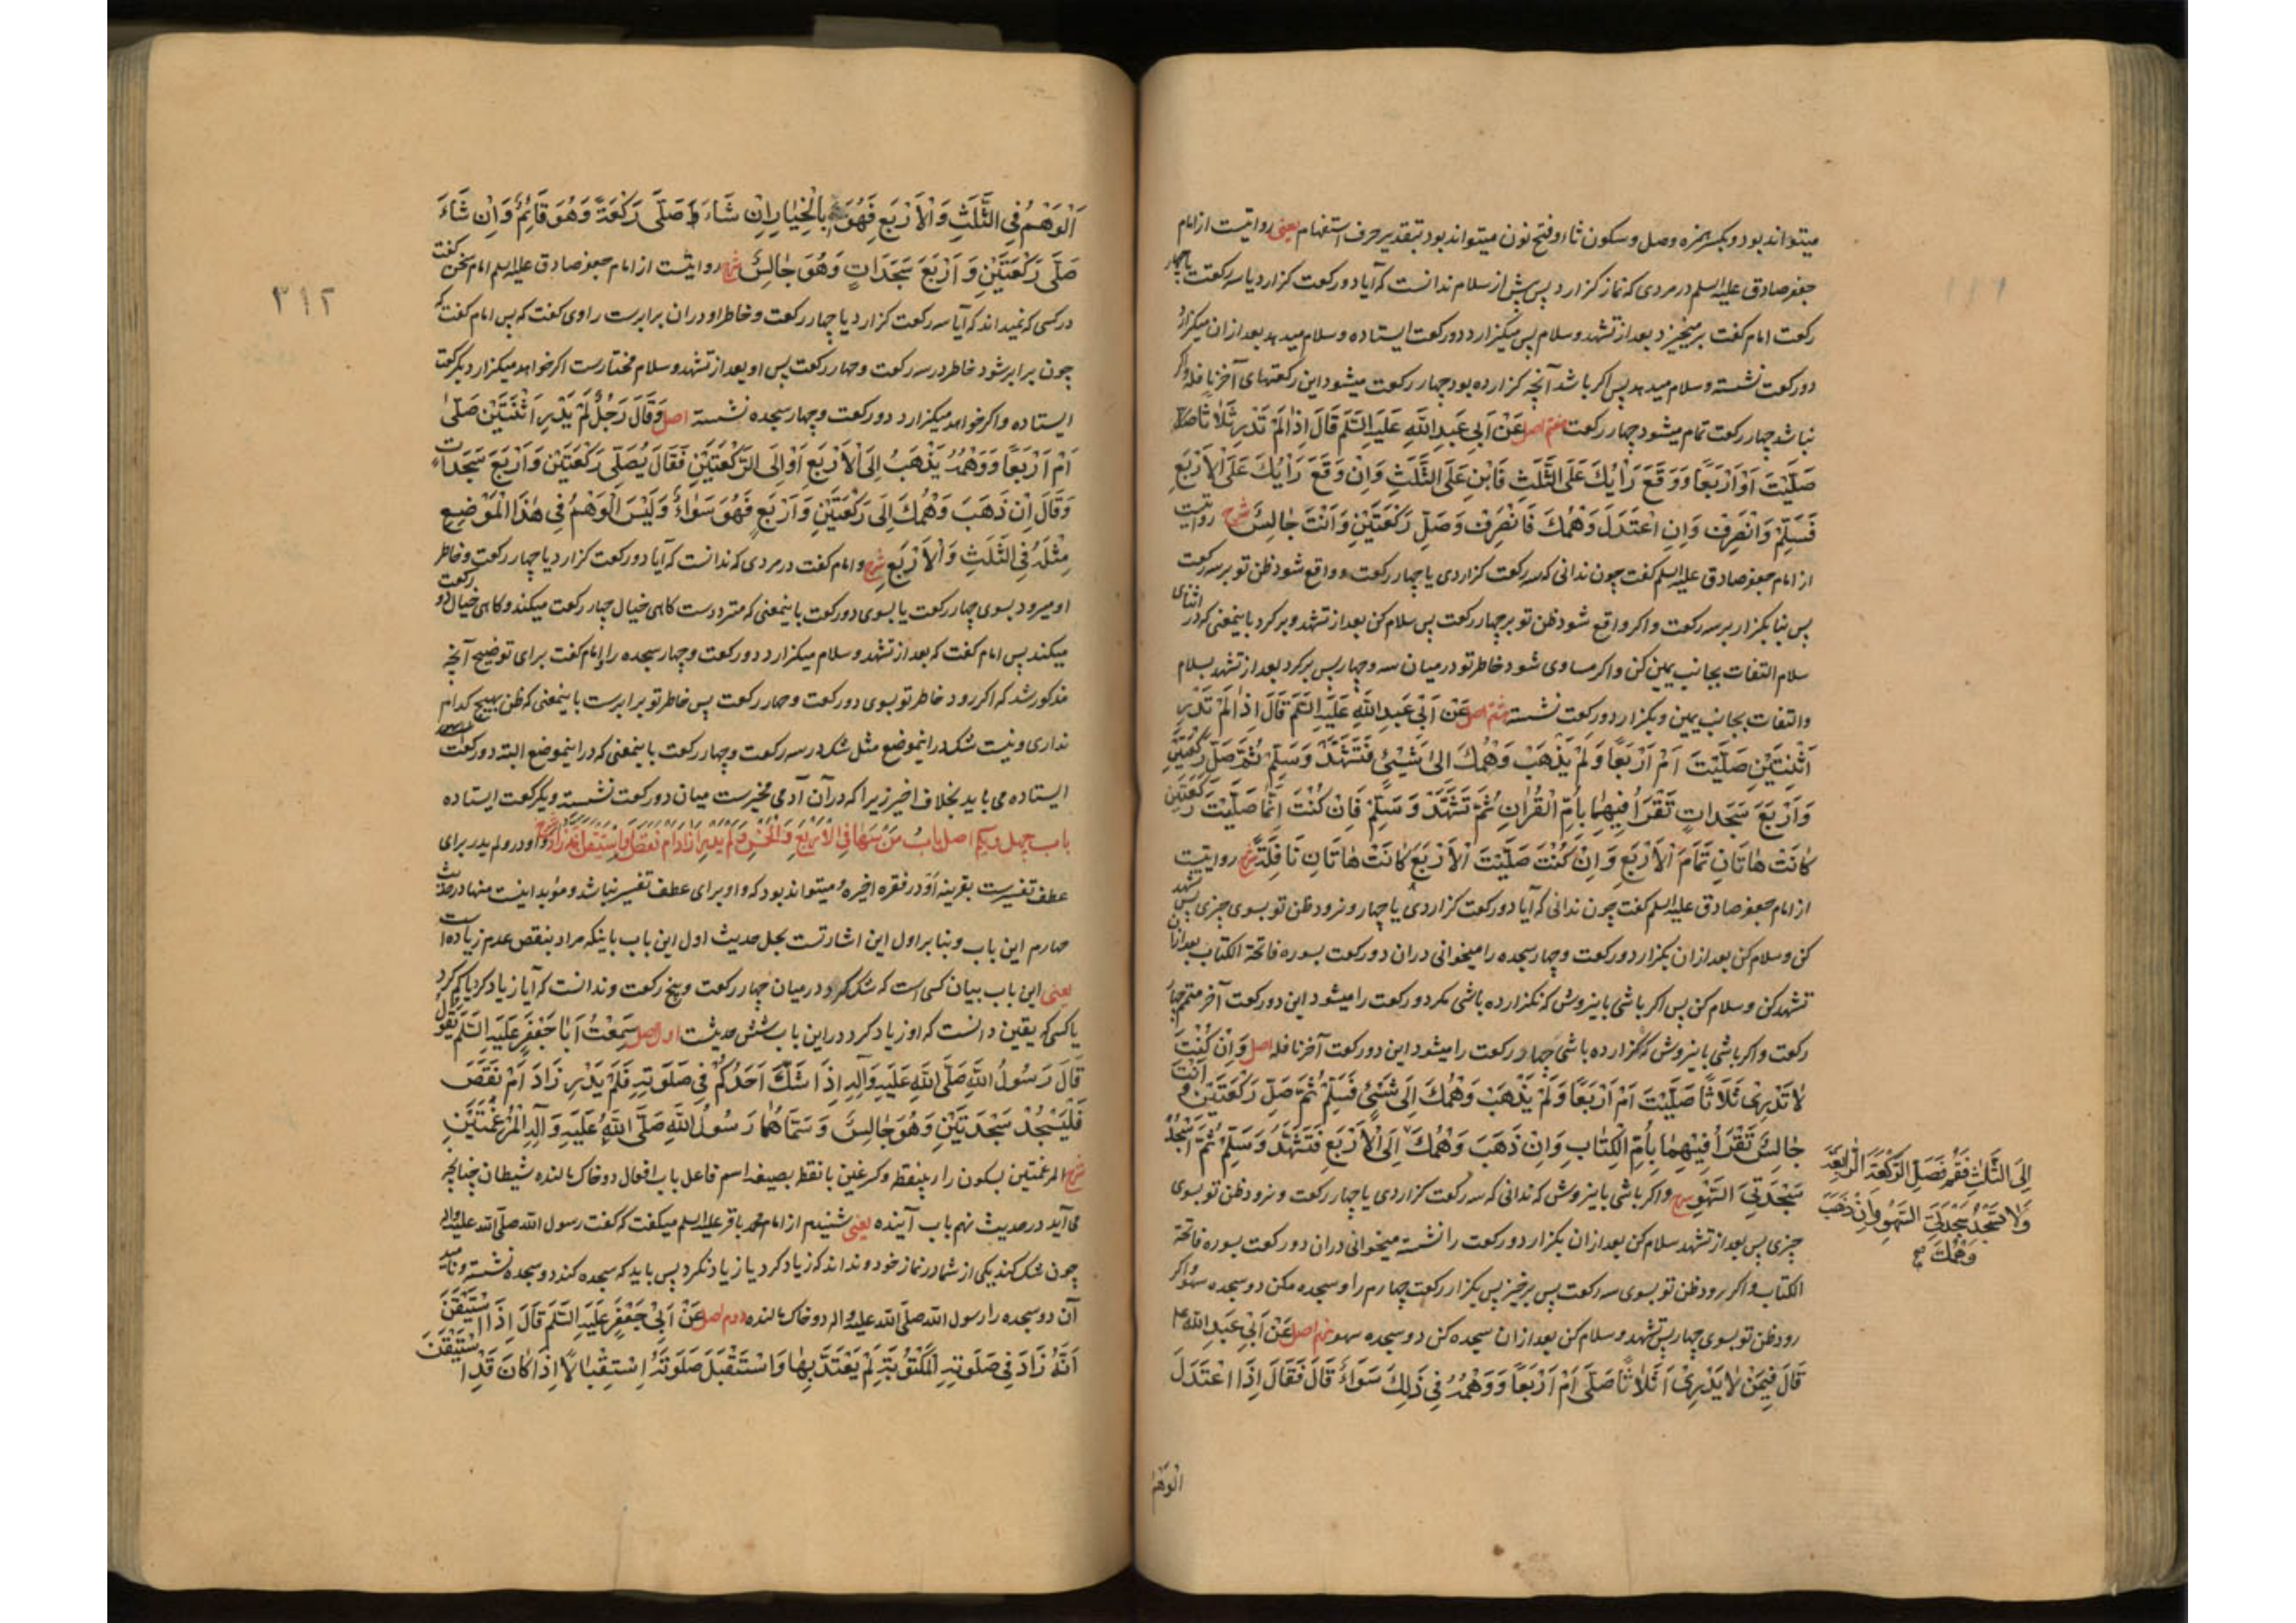 میتواند بود و بکسر همزه وصل و سکون ثا و فتح نون میتواند بود بتقدیر حرف استفهام یعنی روایتست از امام
جعفر صادق علیه السلم در مردی که نماز کزارد پس پیش از سلام ندانست که آیا دو رکعت کزارد یا سه رکعت یا چهار
رکعت امام کفت برمیخیزد بعد از تشهد و سلام پس میکزارد دو رکعت ایستاده و سلام میدهد بعد از ان میکزارد
دو رکعت نشسته و سلام میدهد پس اکر باشد آنچه کزارده بود چهار رکعت میشود این رکعتهای آخر نافله و اکر
نباشد چهار رکعت تمام میشود چهار رکعت هفتم اصل عَنْ اَبِی عَبدِ اللّٰهِ عَلَیهِ السَّلَم قَالَ اِذَا لَمْ تَدْرِ ثَلَاثًا
صَلَّیْتَ اَوْ اَرْبَعًا وَوَقَعَ رَأیُكَ عَلَی الثَّلٰثِ فَابْنِ عَلَی الثَّلٰثِ وَاِنْ وَقَعَ رَأیُكَ عَلَی الْاَرْبَعِ
فَسَلِّمْ وَانْصَرِفْ وَاِنِ اعْتَدَلَ وَهْمُكَ فَانْصَرِفْ وَصَلِّ رَکْعَتَیْنِ وَاَنْتَ جَالِسٌ شرح روایتست
از امام جعفر صادق علیه السلم کفت چون ندانی که سه رکعت کزاردی یا چهار رکعت و واقع شود ظن تو بر سه رکعت
پس بنا بکزار بر سه رکعت و اکر واقع شود ظن تو بر چهار رکعت پس سلام کن بعد از تشهد و برکرد باینمعنی که در اثنای
سلام التفات بجانب یمین کن و اکر مساوی شود خاطر تو در میان سه و چهار پس برکرد بعد از تشهد بسلام
و التفات بجانب یمین و بکزار دو رکعت نشسته هشتم اصل عَنْ اَبِی عَبدِ اللّٰهِ عَلَیهِ السَّلَم قَالَ اِذَا لَمْ تَدْرِ
اَثْنَتَیْنِ صَلَّیْتَ اَمْ اَرْبَعًا وَلَمْ یَذْهَبْ وَهْمُكَ اِلٰی شَیْئٍ فَتَشَهَّدْ وَسَلِّمْ ثُمَّ صَلِّ رَکْعَتَیْنِ
وَاَرْبَعَ سَجَدَاتٍ تَقْرَأُ فِیهِمَا بِاُمِّ الْقُرْاٰنِ ثُمَّ تَشَهَّدْ وَسَلِّمْ فَاِنْ کُنْتَ اِنَّمَا صَلَّیْتَ رَکْعَتَیْنِ
کَانَتْ هَاتَانِ تَمَامَ الْاَرْبَعِ وَاِنْ کُنْتَ صَلَّیْتَ الْاَرْبَعَ کَانَتْ هَاتَانِ نَافِلَةً شرح روایتست
از امام جعفر صادق علیه السلم کفت چون ندانی که آیا دو رکعت کزاردی یا چهار و نرود ظن تو بسوی چیزی پس تشهد
کن و سلام کن بعد از ان بکزار دو رکعت و چهار سجده را میخوانی در ان دو رکعت بسوره فاتحة الکتاب بعد از ان
تشهد کن و سلام کن پس اکر باشی باینروش که نکزارده باشی مکر دو رکعت را میشود این دو رکعت آخر متمم چهار
رکعت و اکر باشی باینروش که کزارده باشی چهار رکعت را میشود این دو رکعت آخر نافله اصل وَاِنْ کُنْتَ
لَا تَدْرِی ثَلَاثًا صَلَّیْتَ اَمْ اَرْبَعًا وَلَمْ یَذْهَبْ وَهْمُكَ اِلَی شَیْئٍ فَسَلِّمْ ثُمَّ صَلِّ رَکْعَتَیْنِ وَ اَنْتَ
جَالِسٌ تَقْرَأُ فِیهِمَا بِاُمِّ الْکِتَابِ وَاِنْ ذَهَبَ وَهْمُكَ اِلَی الْاَرْبَعِ فَتَشَهَّدْ وَسَلِّمْ ثُمَّ اسْجُدْ
سَجْدَتَیِ السَّهْوِ شرح و اکر باشی باینروش که ندانی که سه رکعت کزاردی یا چهار رکعت و نرود ظن تو بسوی
چیزی پس بعد از تشهد سلام کن بعد از ان بکزار دو رکعت را نشسته میخوانی در ان دو رکعت بسوره فاتحة
الکتاب و اکر برود ظن تو بسوی سه رکعت پس برخیز پس بکزار رکعت چهارم را و سجده مکن دو سجده سهو و اکر
رود ظن تو بسوی چهار پس تشهد و سلام کن بعد از ان سجده کن دو سجده سهو نهم اصل عَنْ اَبِی عَبدِ اللّٰهِ
قَالَ فِیمَنْ لَا یَدْرِی اَثَلَاثًا صَلَّی اَمْ اَرْبَعًا وَوَهْمُهُ فِی ذٰلِكَ سَوَاءٌ قَالَ فَقَالَ اِذَا اعْتَدَلَ
الوَهْمُ
اِلَی الثَّلٰثِ فَقُمْ فَصَلِّ الرَّکْعَةَ الرَّابِعَةَ
وَلَا تَسْجُدْ سَجْدَتَیِ السَّهْوِ وَاِنْ ذَهَبَ
وَهْمُكَ صح
۳۱۲
اَلْوَهْمُ فِی الثَّلٰثِ وَالْاَرْبَعِ فَهُوَ بِالْخِیَارِ اِنْ شَاءَ صَلَّی رَکْعَةً وَهُوَ قَائِمٌ وَاِنْ شَاءَ
صَلَّی رَکْعَتَیْنِ وَاَرْبَعَ سَجَدَاتٍ وَهُوَ جَالِسٌ شرح روایتست از امام جعفر صادق علیه السلم امام سخن کفت
در کسی که نمیداند که آیا سه رکعت کزارد یا چهار رکعت و خاطر او در ان برابرست راوی کفت که پس امام کفت که
چون برابر شود خاطر در سه رکعت و چهار رکعت پس او بعد از تشهد و سلام مختارست اکر خواهد میکزارد یکرکعت
ایستاده و اکر خواهد میکزارد دو رکعت و چهار سجده نشسته اصل وَقَالَ رَجُلٌ لَمْ یَدْرِ اَثْنَتَیْنِ صَلّٰی
اَمْ اَرْبَعًا وَوَهْمُهُ یَذْهَبُ اِلَی الْاَرْبَعِ اَوْ اِلَی الرَّکْعَتَیْنِ فَقَالَ یُصَلِّی رَکْعَتَیْنِ وَاَرْبَعَ سَجَدَاتٍ
وَقَالَ اِنْ ذَهَبَ وَهْمُكَ اِلَی رَکْعَتَیْنِ وَاَرْبَعٍ فَهُوَ سَوَاءٌ وَلَیْسَ الْوَهْمُ فِی هٰذَا الْمَوْضِعِ
مِثْلَهُ فِی الثَّلٰثِ وَالْاَرْبَعِ شرح و امام کفت در مردی که ندانست که آیا دو رکعت کزارد یا چهار رکعت و خاطر
او میرود بسوی چهار رکعت یا بسوی دو رکعت باینمعنی که مترددست کاهی خیال چهار رکعت میکند و کاهی خیال دو رکعت
میکند پس امام کفت که بعد از تشهد و سلام میکزارد دو رکعت و چهار سجده را و امام کفت برای توضیح آنچه
مذکور شد که اکر رود خاطر تو بسوی دو رکعت و چهار رکعت پس خاطر تو برابرست باینمعنی که ظن بهیچ کدام
نداری و نیست شک در اینموضع مثل شک در سه رکعت و چهار رکعت باینمعنی که در اینموضع البته دو رکعت
ایستاده می باید بخلاف اخیر زیرا که در آن آدمی مخیرست میان دو رکعت نشسته و یکرکعت ایستاده
باب چهل و یکم اصل بَابُ مَنْ سَهَا فِی الْاَرْبَعِ وَالْخَمْسِ وَلَمْ یَدْرِ اَزَادَ اَمْ نَقَصَ اَوِ اسْتَیْقَنَ اَنَّهُ زَادَ شرح واو در و لم یدر برای
عطف تفسیرست بقرینه اَوْ در فقره اخیره و میتواند بود که واو برای عطف تفسیر نباشد و مؤید اینست منها در حدیث
چهارم این باب و بنا بر اول این اشارتست بحل حدیث اول این باب باینکه مراد بنقص عدم زیاده است
یعنی این باب بیان کسی است که شک کرد در میان چهار رکعت و پنج رکعت و ندانست که آیا زیاد کرد یا کم کرد
یا کسی که یقین دانست که او زیاد کرد در این باب شش حدیثست اول اصل سَمِعْتُ اَبَا جَعْفَرٍ عَلَیهِ السَّلَم یَقُولُ
قَالَ رَسُولُ اللّٰهِ صَلَّی اللّٰهُ عَلَیهِ وَآلِهِ اِذَا شَكَّ اَحَدُکُمْ فِی صَلٰوتِهِ فَلَمْ یَدْرِ زَادَ اَمْ نَقَصَ
فَلْیَسْجُدْ سَجْدَتَیْنِ وَهُوَ جَالِسٌ وَسَمَّاهُمَا رَسُولُ اللّٰهِ صَلَّی اللّٰهُ عَلَیهِ وَآلِهِ الْمُرْغِمَتَیْنِ
شرح المرغمتین بسکون راء بینقطه و کسر غین بانقطه بصیغه اسم فاعل باب افعال دو خاک مالنده شیطان چنانچه
می آید در حدیث نهم باب آینده یعنی شنیدم از امام محمد باقر علیه السلم میکفت که کفت رسول الله صلّی الله علیه و اله
چون شک کند یکی از شما در نماز خود و نداند که زیاد کرد یا زیاد نکرد پس باید که سجده کند دو سجده نشسته و نامید
آن دو سجده را رسول الله صلّی الله علیه و اله دو خاک مالنده دوم اصل عَنْ اَبِی جَعْفَرٍ عَلَیهِ السَّلَم قَالَ اِذَا اسْتَیْقَنَ
اَنَّهُ زَادَ فِی صَلٰوتِهِ الْمَکْتُوبَةِ لَمْ یَعْتَدَّ بِهَا وَاسْتَقْبَلَ صَلٰوتَهُ اِسْتِقْبَالًا اِذَا کَانَ قَدِ اسْتَیْقَنَ